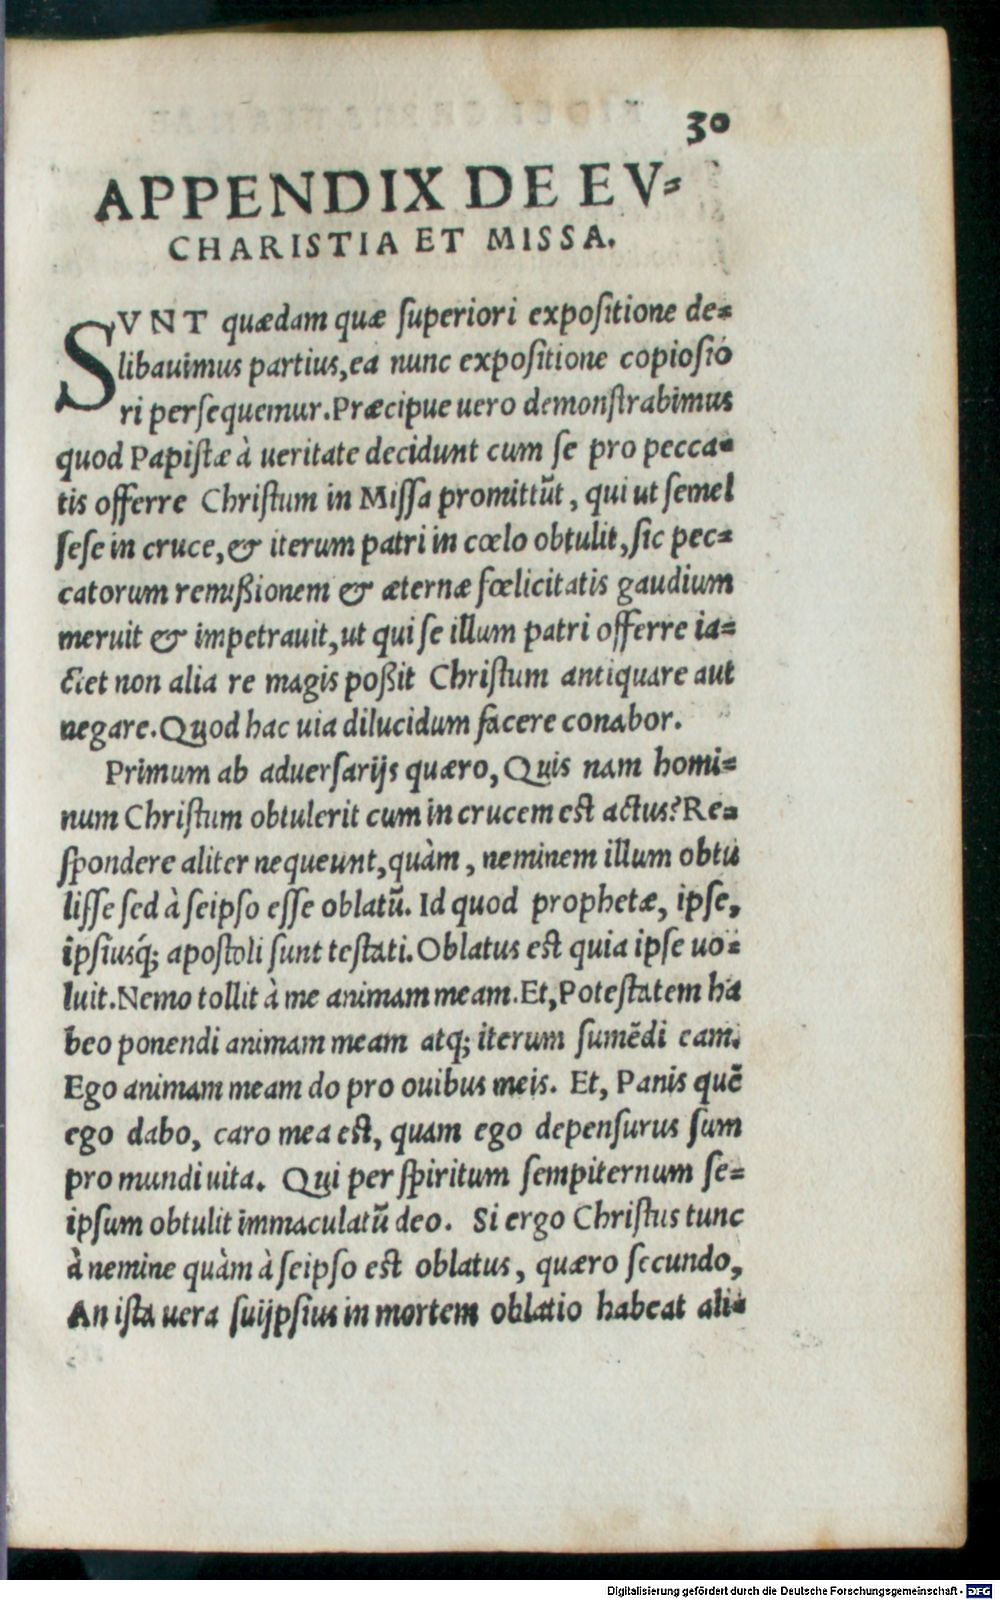 30
APPENDIX DE EV⸗
CHARISTIA ET MISSA.
SVNT quædam quæ ſuperiori expoſitione de⸗
libauimus partius, ea nunc expoſitione copioſio
ri perſequemur. Præcipue uero demonſtrabimus
quod Papiſtæ à ueritate decidunt cum ſe pro pecca⸗
tis offerre Chriſtum in Miſſa promittũt, qui ut ſemel
ſeſe in cruce, & iterum patri in cœlo obtulit, ſic pec⸗
catorum remißionem & æternæ fœlicitatis gaudium
meruit & impetrauit, ut qui ſe illum patri offerre ia⸗
ctet non alia re magis poßit Chriſtum antiquare aut
negare. Quod hac uia dilucidum facere conabor.
Primum ab aduerſarijs quæro, Quis nam homi⸗
num Chriſtum obtulerit cum in crucem eſt actus? Re⸗
ſpondere aliter nequeunt, quàm, neminem illum obtu
liſſe ſed à ſeipſo eſſe oblatũ. Id quod prophetæ, ipſe,
ipſiusq́; apoſtoli ſunt teſtati. Oblatus eſt quia ipſe uo⸗
luit. Nemo tollit à me animam meam. Et, Poteſtatem ha
beo ponendi animam meam atq; iterum ſumẽdi eam.
Ego animam meam do pro ouibus meis. Et, Panis quẽ
ego dabo, caro mea eſt, quam ego depenſurus ſum
pro mundi uita. Qui per ſpiritum ſempiternum ſe⸗
ipſum obtulit immaculatũ deo. Si ergo Chriſtus tunc
à nemine quàm à ſeipſo eſt oblatus, quæro ſecundo,
An iſta uera ſuijpſius in mortem oblatio habeat ali⸗
Digitalisierung gefördert durch die Deutsche Forschungsgemeinschaft - DFG